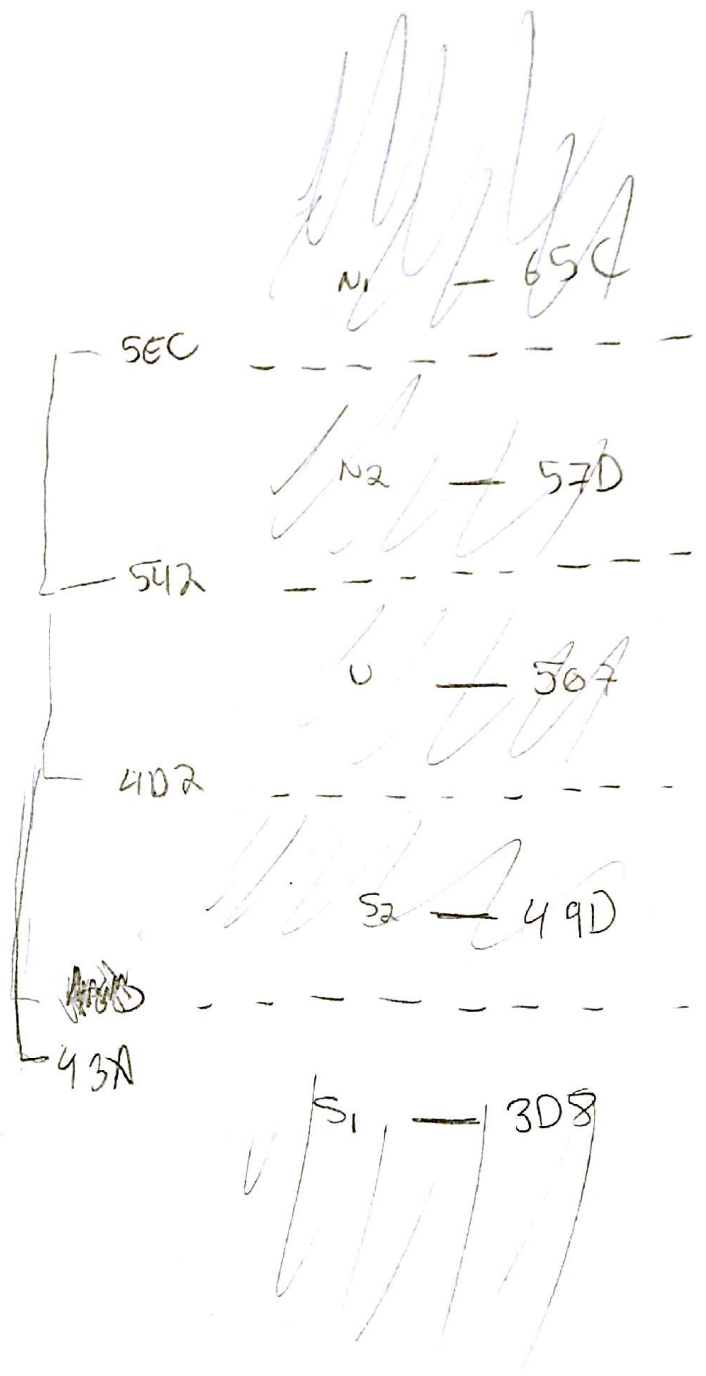 N1 — 65C
5EC
N2 — 57D
542
U — 507
4D2
S2 — 49D
43A
S1 — 3D8